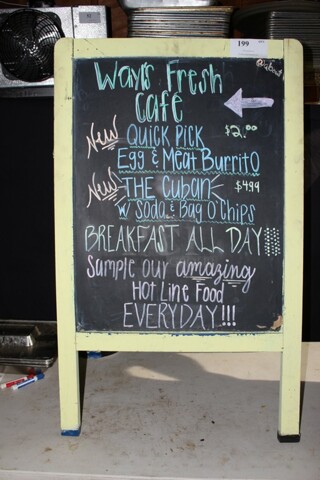 199
Wayl's Fresh
Café
New QUICK PICK $2.00
Egg & Meat Burrito
New THE Cuban $4.99
w/ Soda & Bag O' Chips
BREAKFAST ALL DAY
Sample our amazing
Hot Line Food
EVERYDAY!!!